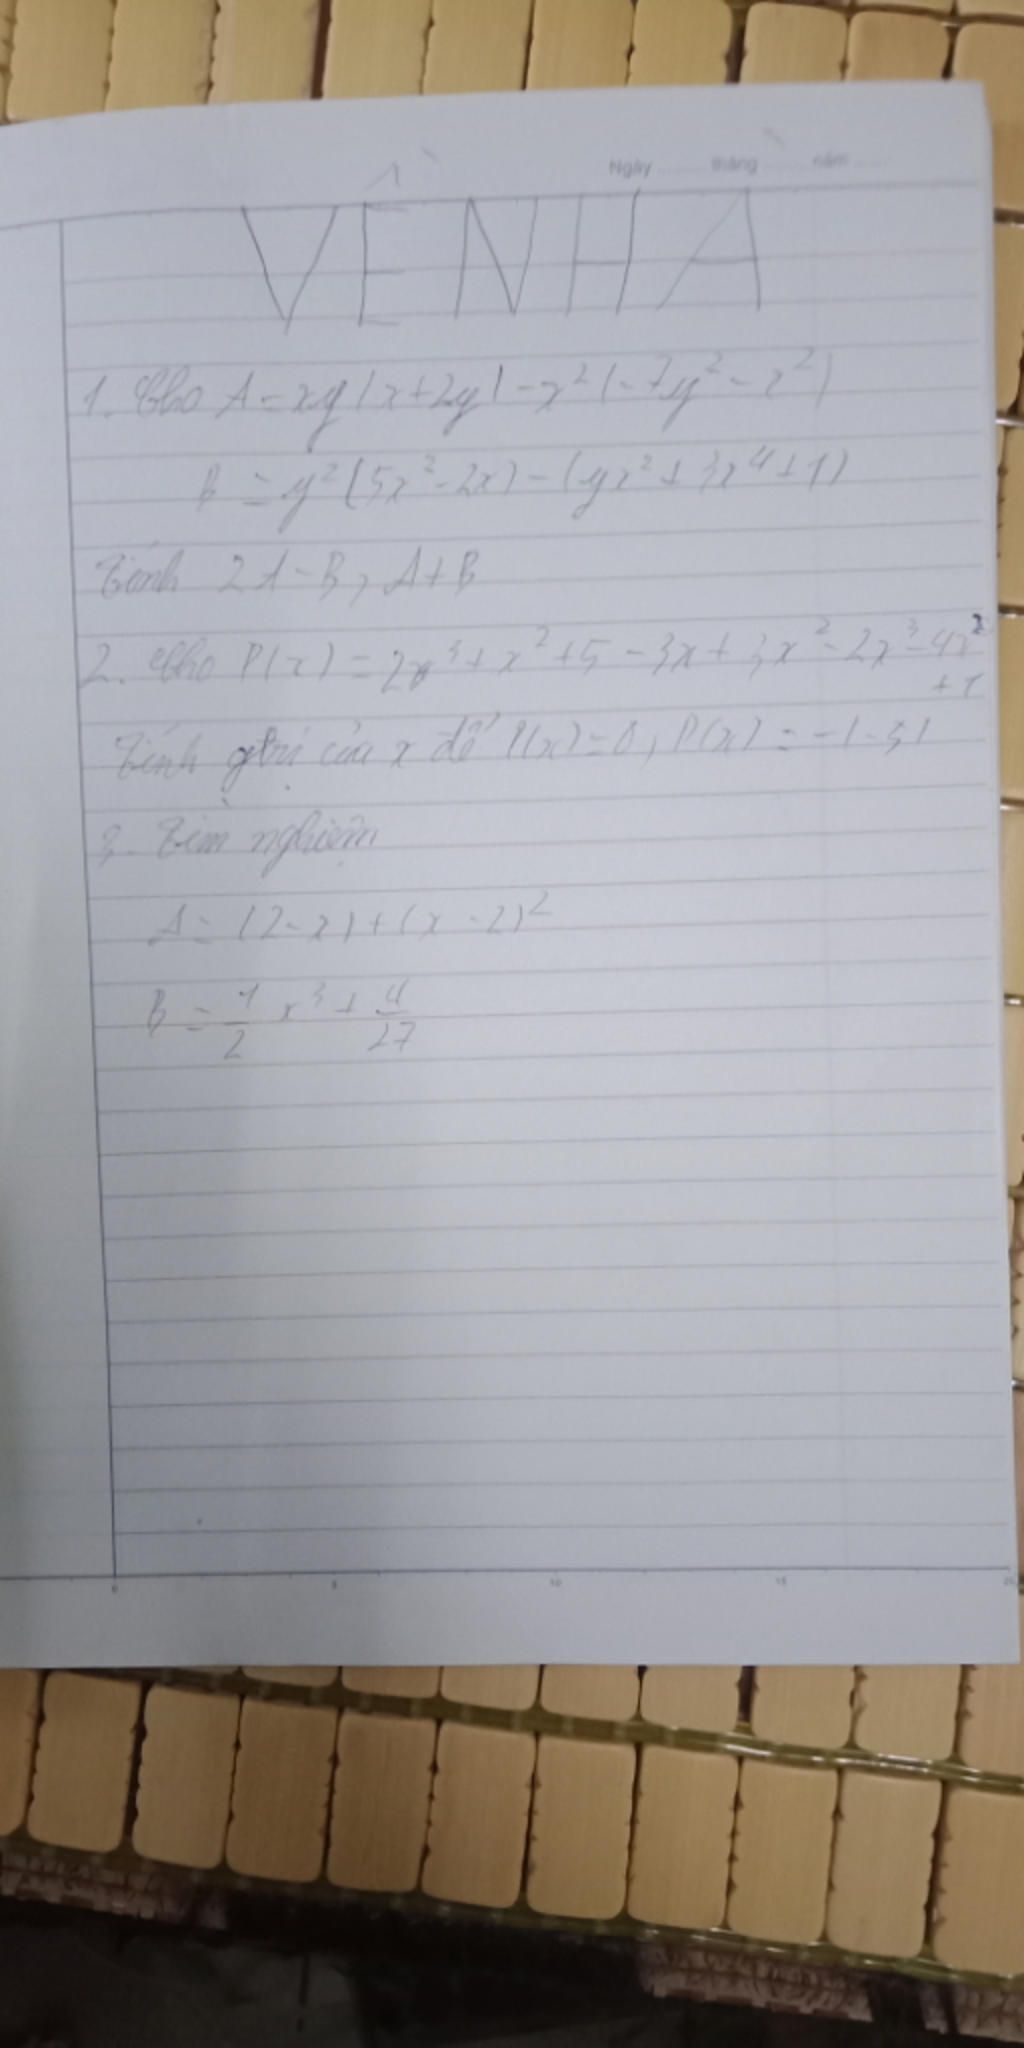 Ngày ........ tháng ........ năm ........
VỀ NHÀ
1. Cho A = xy(x+2y) - x²(-7y² - x²)
B = y²(5x² - 2x) - (yx² + 3x⁴ + 1)
Tính 2A - B, A + B
2. Cho P(x) = 2x³ + x² + 5 - 3x + 3x² - 2x³ - 4x²
+ 1
Tính gtrị của x để P(x) = 0, P(x) = -|-3|
3. Tìm nghiệm
A = (2 - x) + (x - 2)²
B = 1/2 x³ + 4/27
0 5 10 15 20